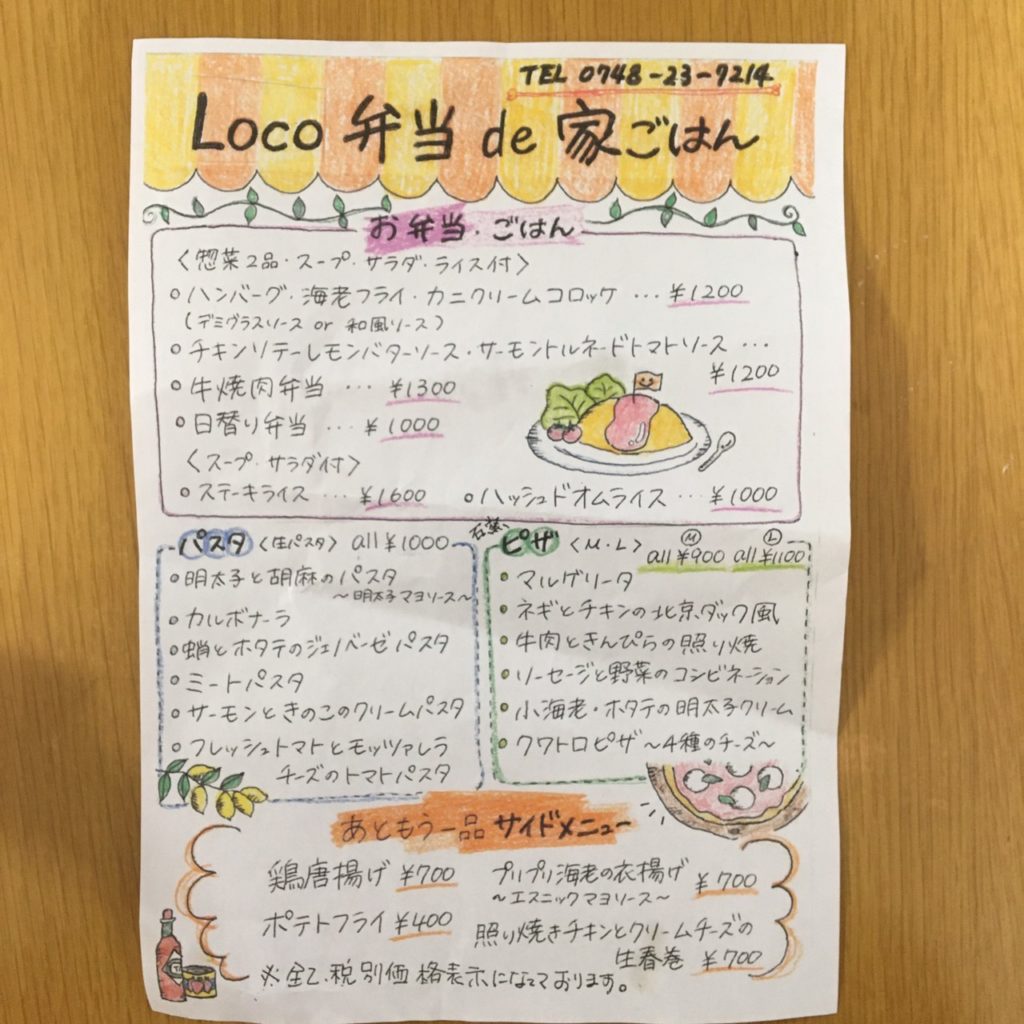 TEL 0748-23-7214
Loco 弁当 de 家ごはん
お弁当・ごはん
〈惣菜2品・スープ・サラダ・ライス付〉
○ハンバーグ・海老フライ・カニクリームコロッケ … ¥1200
(デミグラスソース or 和風ソース)
○チキンソテーレモンバターソース・サーモントルネードトマトソース …
¥1200
○牛焼肉弁当 … ¥1300
○日替り弁当 … ¥1000
〈スープ・サラダ付〉
○ステーキライス … ¥1600 ○ハッシュドオムライス … ¥1000
パスタ〈生パスタ〉 all ¥1000
○明太子と胡麻のパスタ
～明太子マヨソース～
○カルボナーラ
○蛸とホタテのジェノベーゼパスタ
○ミートパスタ
○サーモンときのこのクリームパスタ
○フレッシュトマトとモッツァレラ
チーズのトマトパスタ
石窯、ピザ〈M・L〉 Ⓜ all ¥900 Ⓛ all ¥1100
○マルゲリータ
○ネギとチキンの北京ダック風
○牛肉ときんぴらの照り焼
○ソーセージと野菜のコンビネーション
○小海老・ホタテの明太子クリーム
○クワトロピザ～4種のチーズ～
あともう一品 サイドメニュー
鶏唐揚げ ¥700
ポテトフライ ¥400
プリプリ海老の衣揚げ ¥700
～エスニックマヨソース～
照り焼きチキンとクリームチーズの
生春巻 ¥700
※全て税別価格表示になっております。